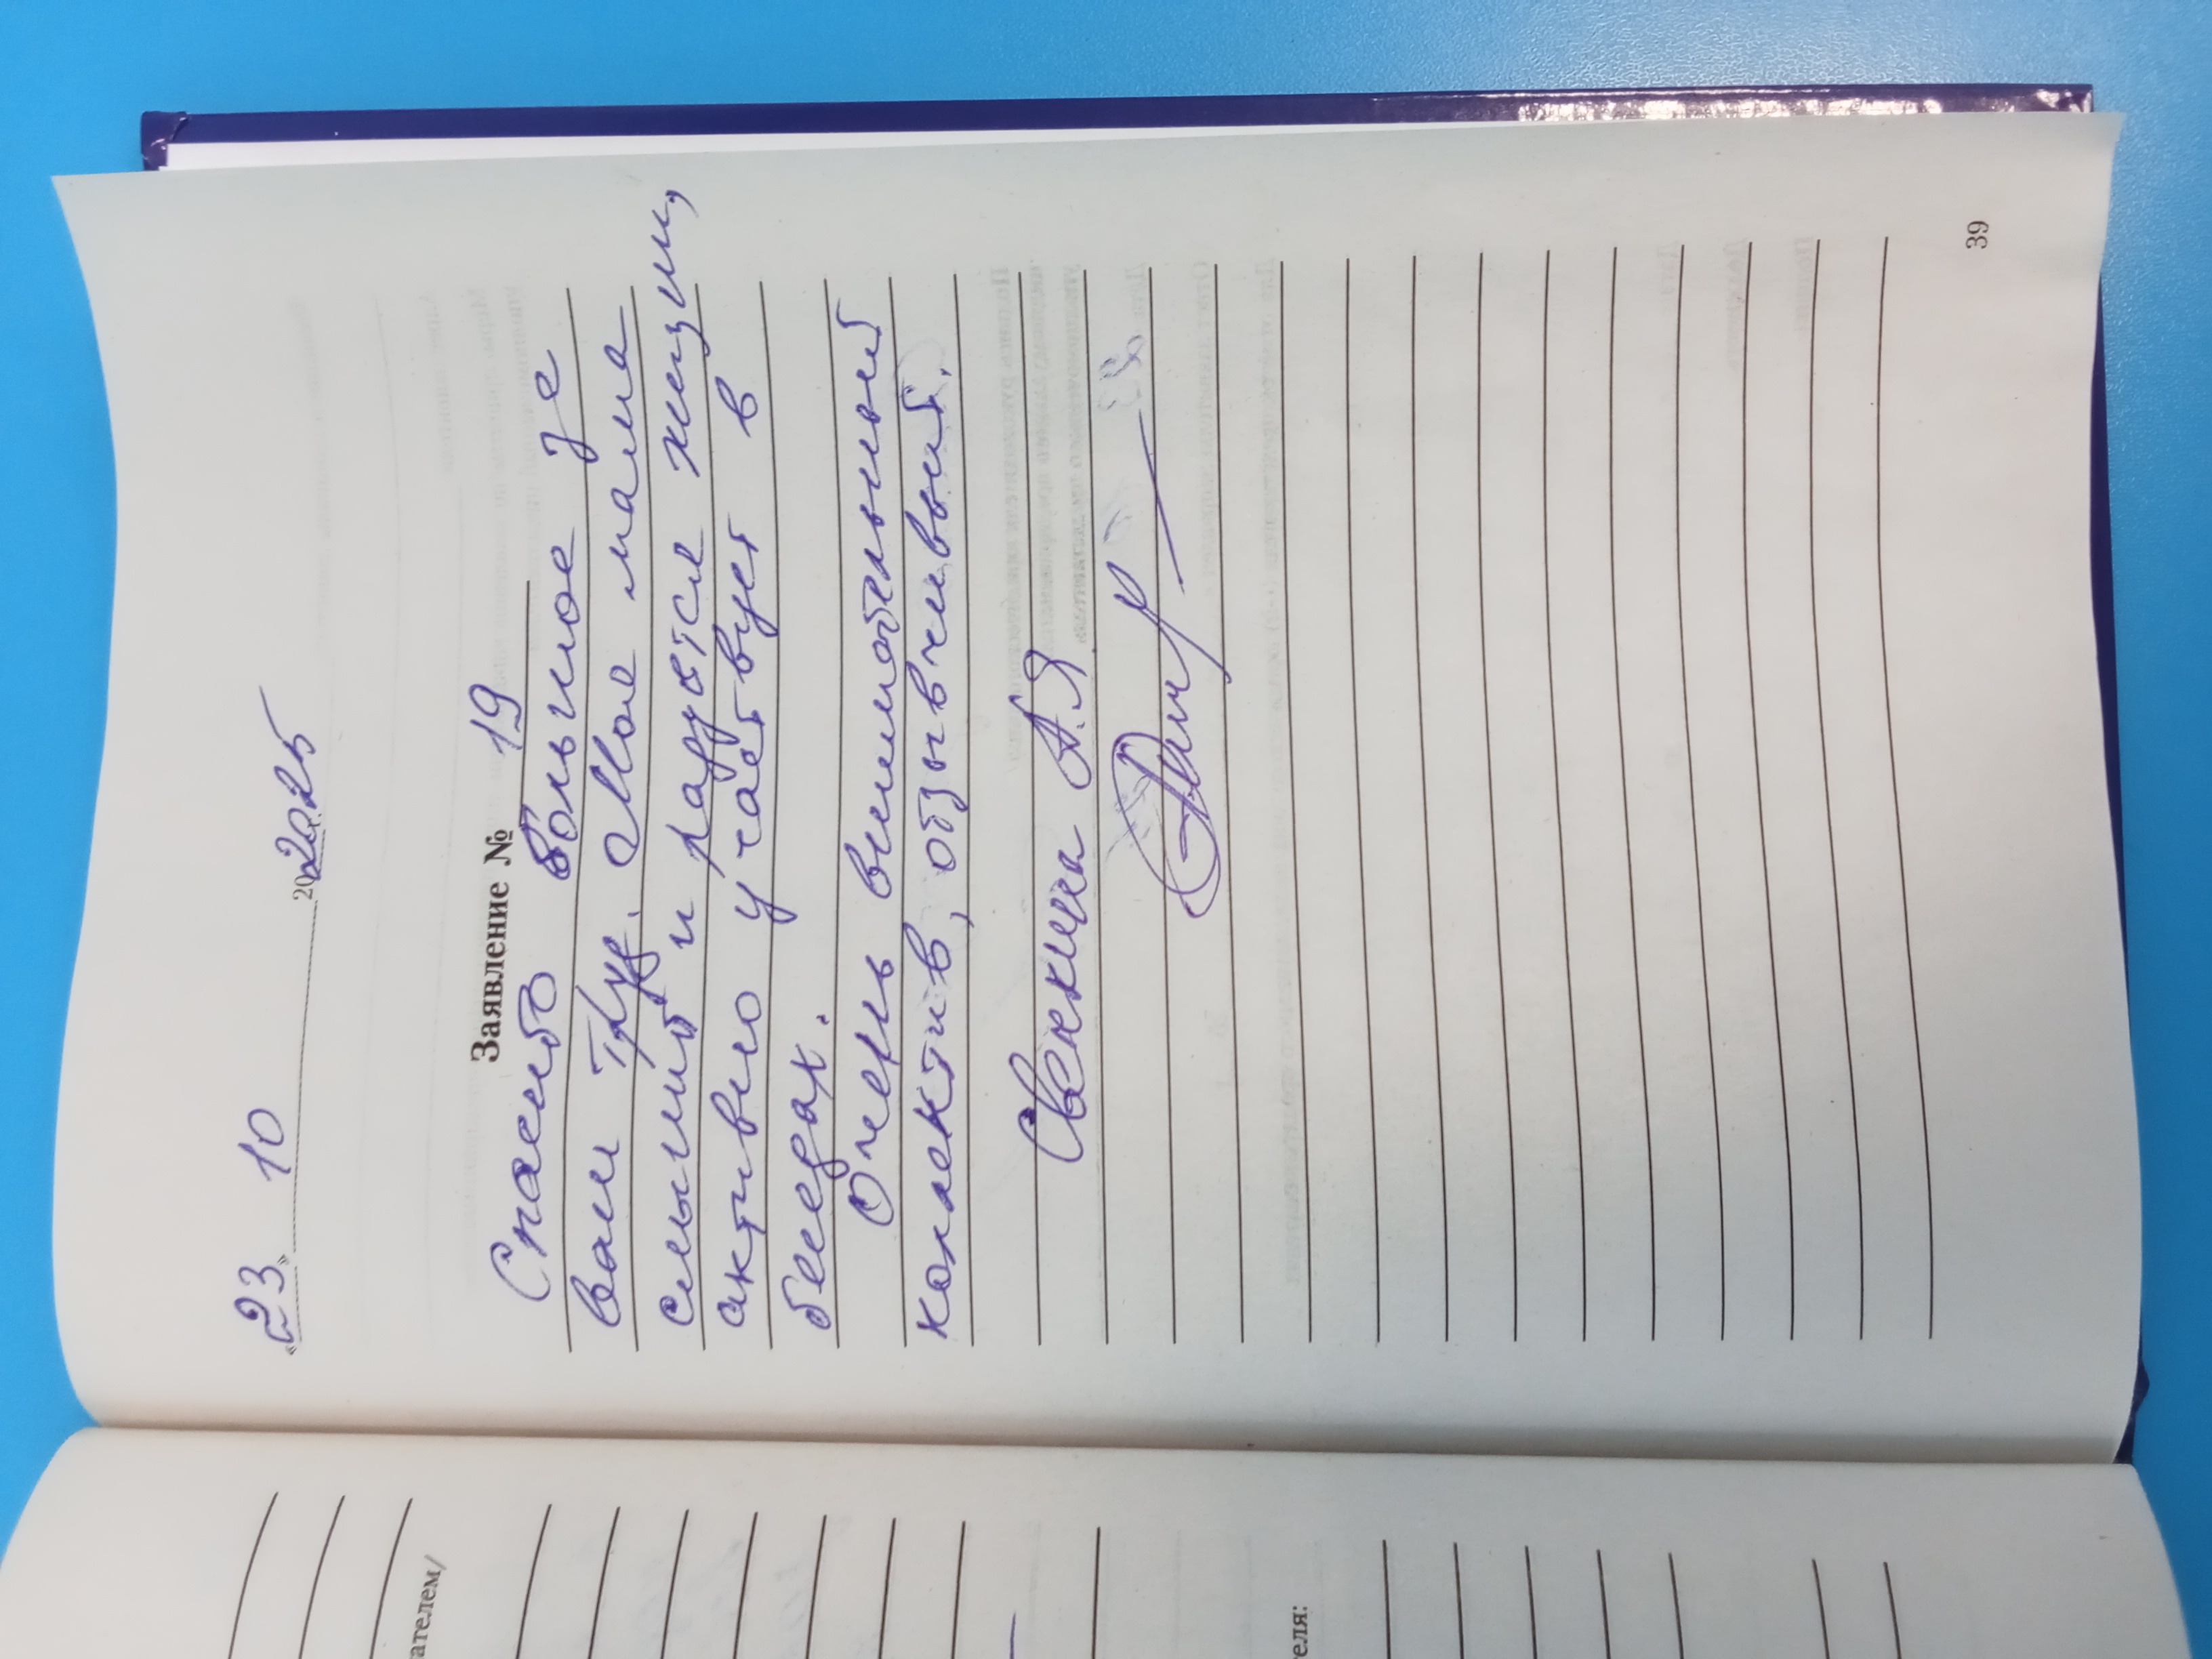 «23» 10 20 2025
Заявление № 19
Спасибо Большое за
ваш труд. Моя мама
слышит и радуется жизни,
активно участвует в
беседах.
Очень внимательный
коллектив, отзывчивый.
Свеккина А.Я
39
ателем/
еля: